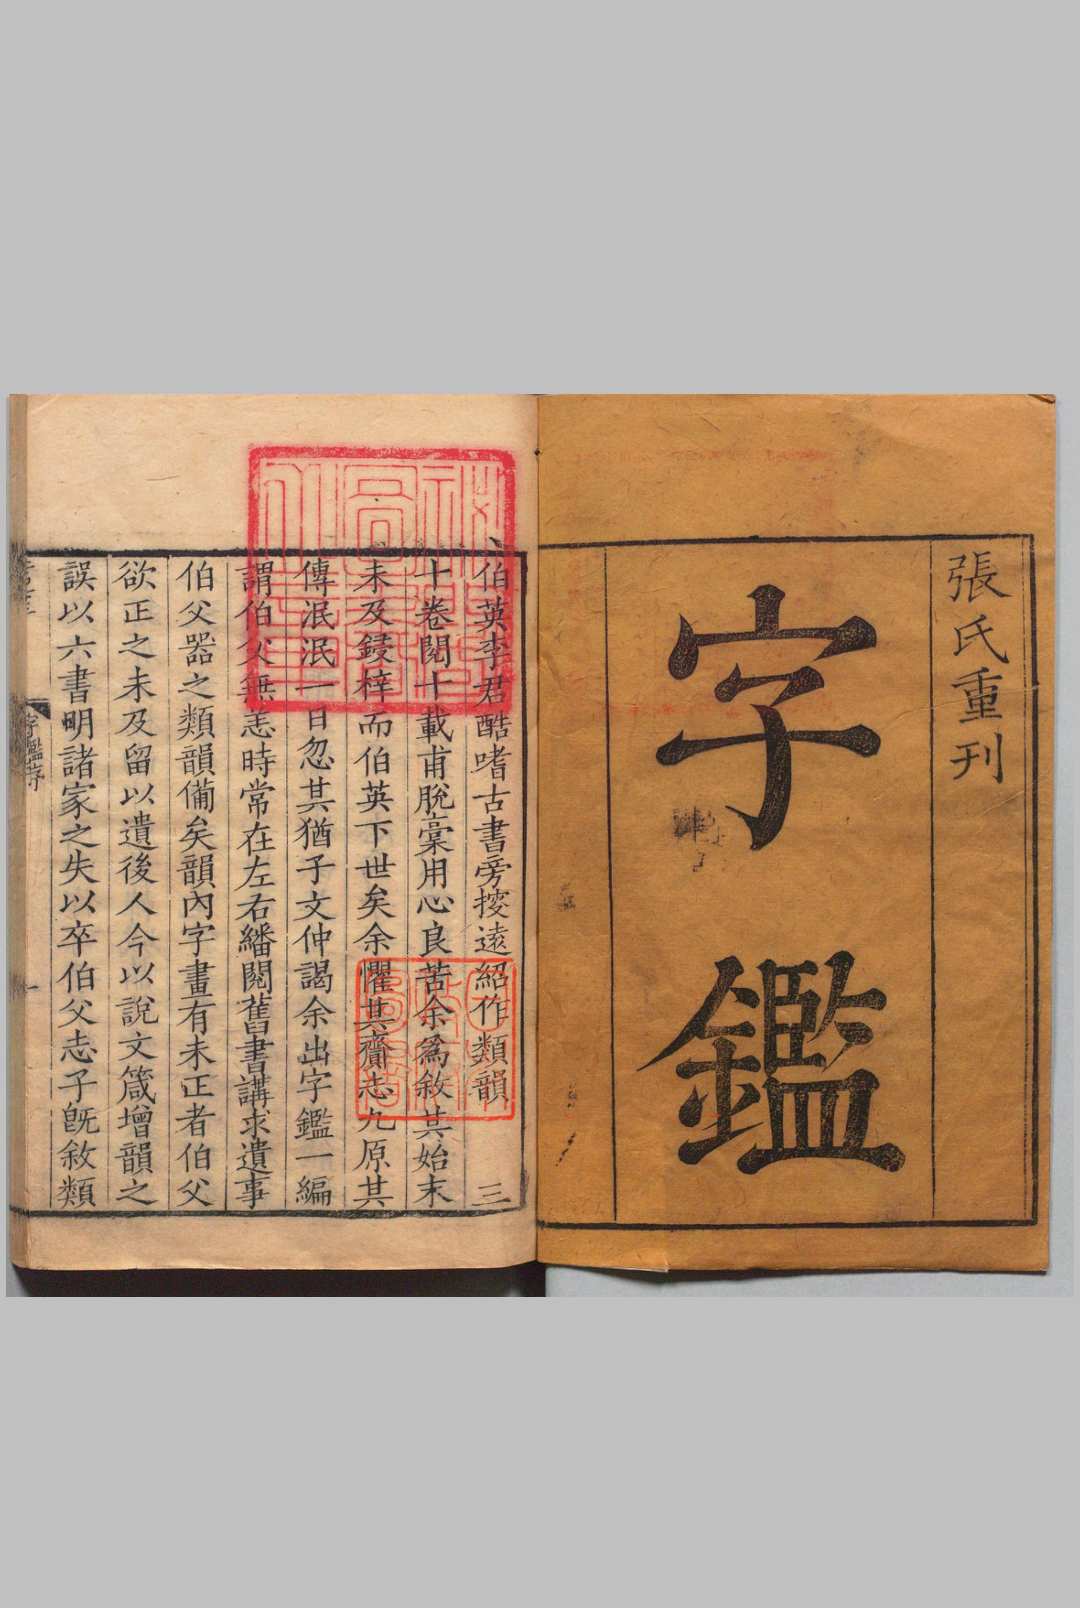 張氏重刊
字鑑
伯英李君酷嗜古書旁搜遠紹作類韻 三
十卷閱十載甫脫稾用心良苦余爲敘其始末
未及鋟梓而伯英下世矣余懼其齎志九原其
傳泯泯一日忽其猶子文仲謁余出字鑑一編
謂伯父無恙時常在左右繙閱舊書講求遺事
伯父器之類韻備矣韻內字畫有未正者伯父
欲正之未及留以遺後人今以說文箴增韻之
誤以六書明諸家之失以卒伯父志予旣敘類
字鑑序
一